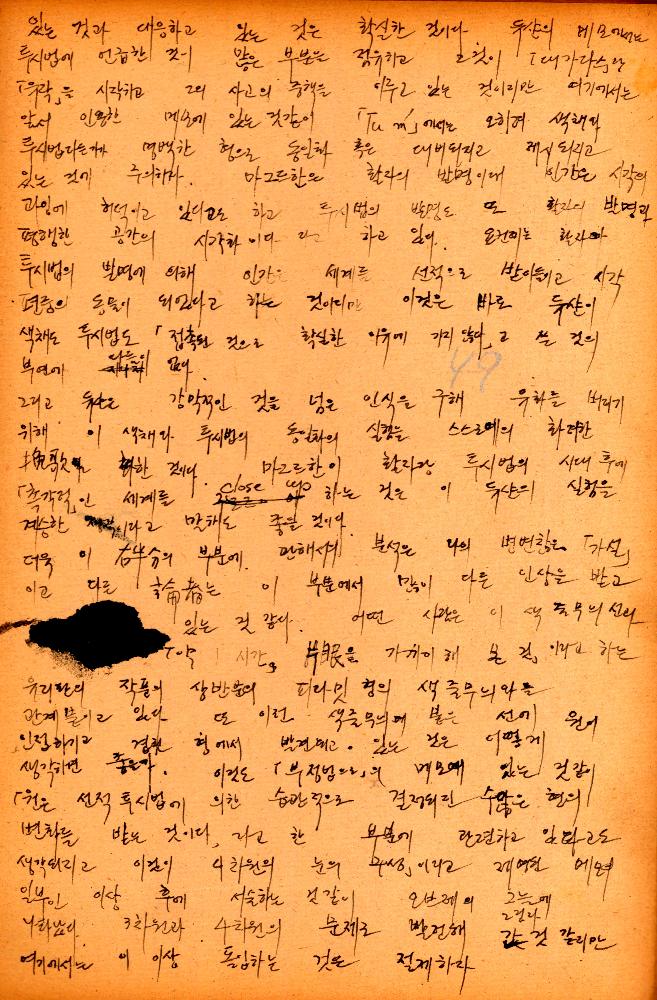 있는 것과 대응하고 있는 것은 확실한 것이다. 듀샨의 메모에서는
투시법에 언급한 것이 많은 부분을 점유하고 그것이
「유작」을 시작하고 그의 사고의 중핵을 이루고 있는 것이지만 여기에서는
앞서 인용한 메모에 있는 것같이 「Tu m'」에서는 오히려 색채와
투시법 명백한 형으로 동일화 혹은 대비되지고 제시되지고
있는 것에 주의하자. 마그르한은 활자의 발명이래 인간은 시각의
과잉에 있다고도 하고 투시법의 발명도 또 활자의 발명과
평행한 공간의 시각화이다 라고 하고 있다. 요컨데는 활자와
투시법의 발명에 의해 인간은 세계를 선적으로 받아들이고 시각
편중의 동물이 되었다고 하는 것이지만 이것은 바로 듀샨이
색채도 투시법도 「접촉된 것으로 확실한 이유에 가지 않다」고 쓴 것의
부연에 다름이 없다.
49
그리고 듀샨은 감각적인 것을 넘은 인식을 구해 유화를 버리기
위해 이 색채와 투시법의 동일화의 실험을 스스로에의 화려한
挽歌로 취한 것이다. 마그르한이 활자와 투시법의 시대 후에
「촉각적」인 세계를 close up 하는 것은 이 듀샨의 실험을
계승한 이라고 말해도 좋을 것이다.
더욱 이 右半分의 부분에 관해서의 분석은 나의 「가설」
이고 다른 論者는 이 부분에서 많이 다른 인상을 받고
있는 것 같다. 어떤 사람은 이 색 줄무늬 선과
「약 1 시간, 片眼을 가까이 해 본 것」이라고 하는
유리판의 작품의 상반분의 피라밋 형의 색 줄무늬와를
관계 붙이고 있다. 또 이런 색줄무늬에 붙은 선에 원이
인접하기고 형에서 발견되고 있는 것은 어떻게
생각하면 좋은가. 이것도 「부정법으로」의 메모에 있는 것같이
「원은 선적 투시법에 의한 습관적으로 결정되진 수많은 형의
변화를 받는 것이다」라고 한 부분에 관련하고 있다고도
생각되지고 이것이 4차원의 눈의 라고
일부인 이상 후에 서술하는 것같이 오브제의 그늘에
3차원과 4차원의 문제로 발전해 간 것 같지만
여기에서는 이 이상 돌입하는 것은 절제하자